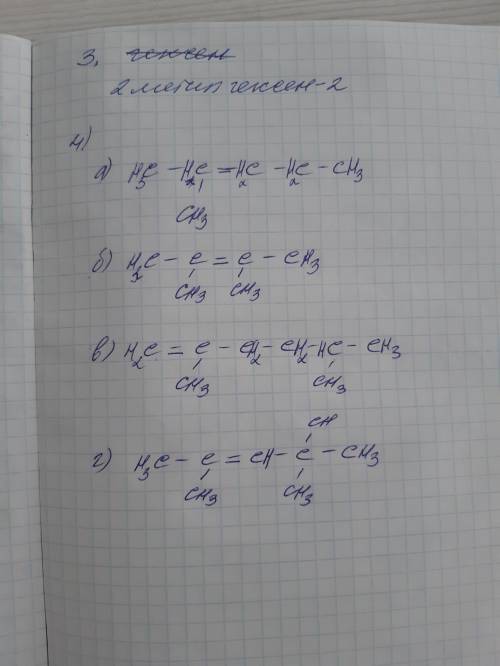 3. гексен
2 метил гексен-2
4)
а) H₃C - H₂C = H₂C - H₂C - CH₃
CH₃
б) H₃C - C = C - CH₃
CH₃ CH₃
в) H₂C = C - CH₂ - CH₂ - HC - CH₃
CH₃ CH₃
CH
г) H₃C - C = CH - C - CH₃
CH₃ CH₃